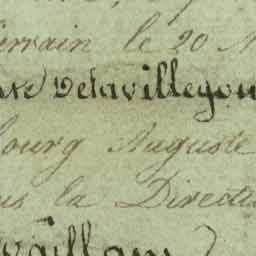 ermain le 20
Delavillegon
bourg Auguste
us la Direct
aillan